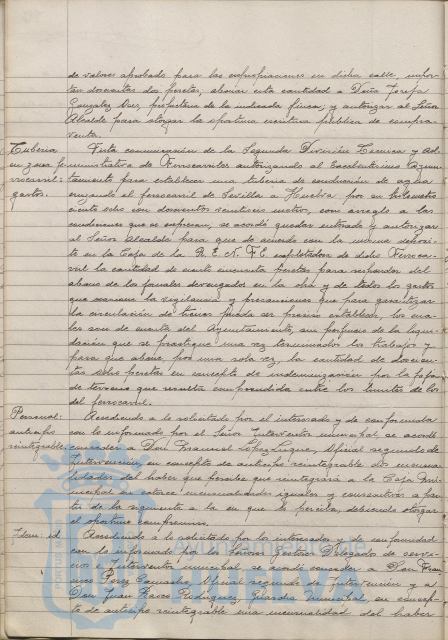 de valores aprobado para las expropiaciones en dicha calle, impor-
tan doscientas dos pesetas, abonar esta cantidad a Doña Josefa
Gonzalez Vaes, propietaria de la indicada finca, y autorizar al Señor
Alcalde para otorgar la oportuna escritura pública de compra-
venta.
Tuberia Vista comunicación de la Segunda Division Técnica y Ad-
en zona fe- ministrativa de Ferrocarriles autorizando al Excelentísimo Ayun-
rrocarril: tamiento para establecer una tuberia de conducción de agua
gastos. cruzando el ferrocarril de Sevilla a Huelva por su kilometro
ciento ocho con doscientos veinticinco metros, con arreglo a las
condiciones que se expresan, se acordó quedar enterado y autorizar
al Señor Alcalde para que de acuerdo con la misma deposi-
te en la Caja de la R.E.N.F.E. explotadora de dicho Ferroca-
rril la cantidad de ciento cincuenta pesetas para responder del
abono de los jornales devengados en la obra y de todos los gastos
que ocasione la vigilancia y precauciones que para garantizar
la circulación de trenes pueda ser preciso establecer, los cua-
les son de cuenta del Ayuntamiento, sin perjuicio de la liqui-
dación que se practique una vez terminados los trabajos y
para que abone, por una sola vez, la cantidad de doscien-
tas ocho pesetas en concepto de indemnización por la faja
de terreno que resulta comprendida entre los limites de los
del ferrocarril.
Personal: Accediendo a lo solicitado por el interesado y de conformidad
anticipo con lo informado por el Señor Interventor municipal, se acordó
reintegrable. conceder a Don Manuel López Luque, Oficial segundo de
Intervención, en concepto de anticipo reintegrable dos mensua-
lidades del haber que percibe que reintegrará a la Caja Mu-
nicipal en catorce mensualidades iguales y consecutivas a par-
tir de la siguiente a la en que lo perciba, debiendo otorgar
el oportuno compromiso.
Idem. id. Accediendo a lo solicitado por los interesados y de conformidad
con lo informado por los Señores Gestor Delegado de servi-
cios e Interventor municipal, se acordó conceder a Don Fran-
cisco Perez Camacho, Oficial segundo de Intervención y a
Don Juan Ponce Rodríguez, Guardia Municipal, en concep-
to de anticipo reintegrable una mensualidad del haber